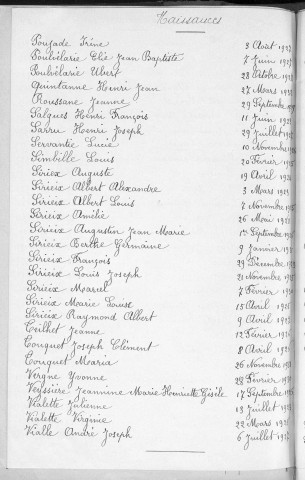 Naissances
Poujade Irène 3 Août 192
Poulvélarie Elie Jean Baptiste 7 Juin 192
Poulvélarie Ubert 28 Octobre 192
Quintanne Henri Jean 27 Mars 192
Roussane Jeanne 29 Septembre 192
Salgues Henri François 11 Juin 192
Sarru Henri Joseph 29 Juillet 192
Servantie Lucie 10 Novembre 192
Simbille Louis 20 Février 192
Sirieix Auguste 19 Avril 192
Sirieix Albert Alexandre 3 Mars 192
Sirieix Albert Louis 7 Novembre 192
Sirieix Amélie 26 Mai 192
Sirieix Augustin Jean Marie 1er Septembre 192
Sirieix Berthe Germaine 9 Janvier 192
Sirieix François 29 Décembre 192
Sirieix Louis Joseph 21 Novembre 192
Sirieix Marcel 7 Février 192
Sirieix Marie Louise 15 Avril 192
Sirieix Raymond Albert 9 Avril 192
Teilhet Jeanne 12 Février 192
Tourquet Joseph Clément 8 Avril 192
Tourquet Maria 26 Novembre 192
Vergne Yvonne 22 Février 192
Veyssière Jeannine Marie Henriette Gisèle 17 Septembre 192
Vialette Julienne 13 Juillet 192
Vialette Virginie 22 Mars 192
Vialle André Joseph 6 Juillet 192